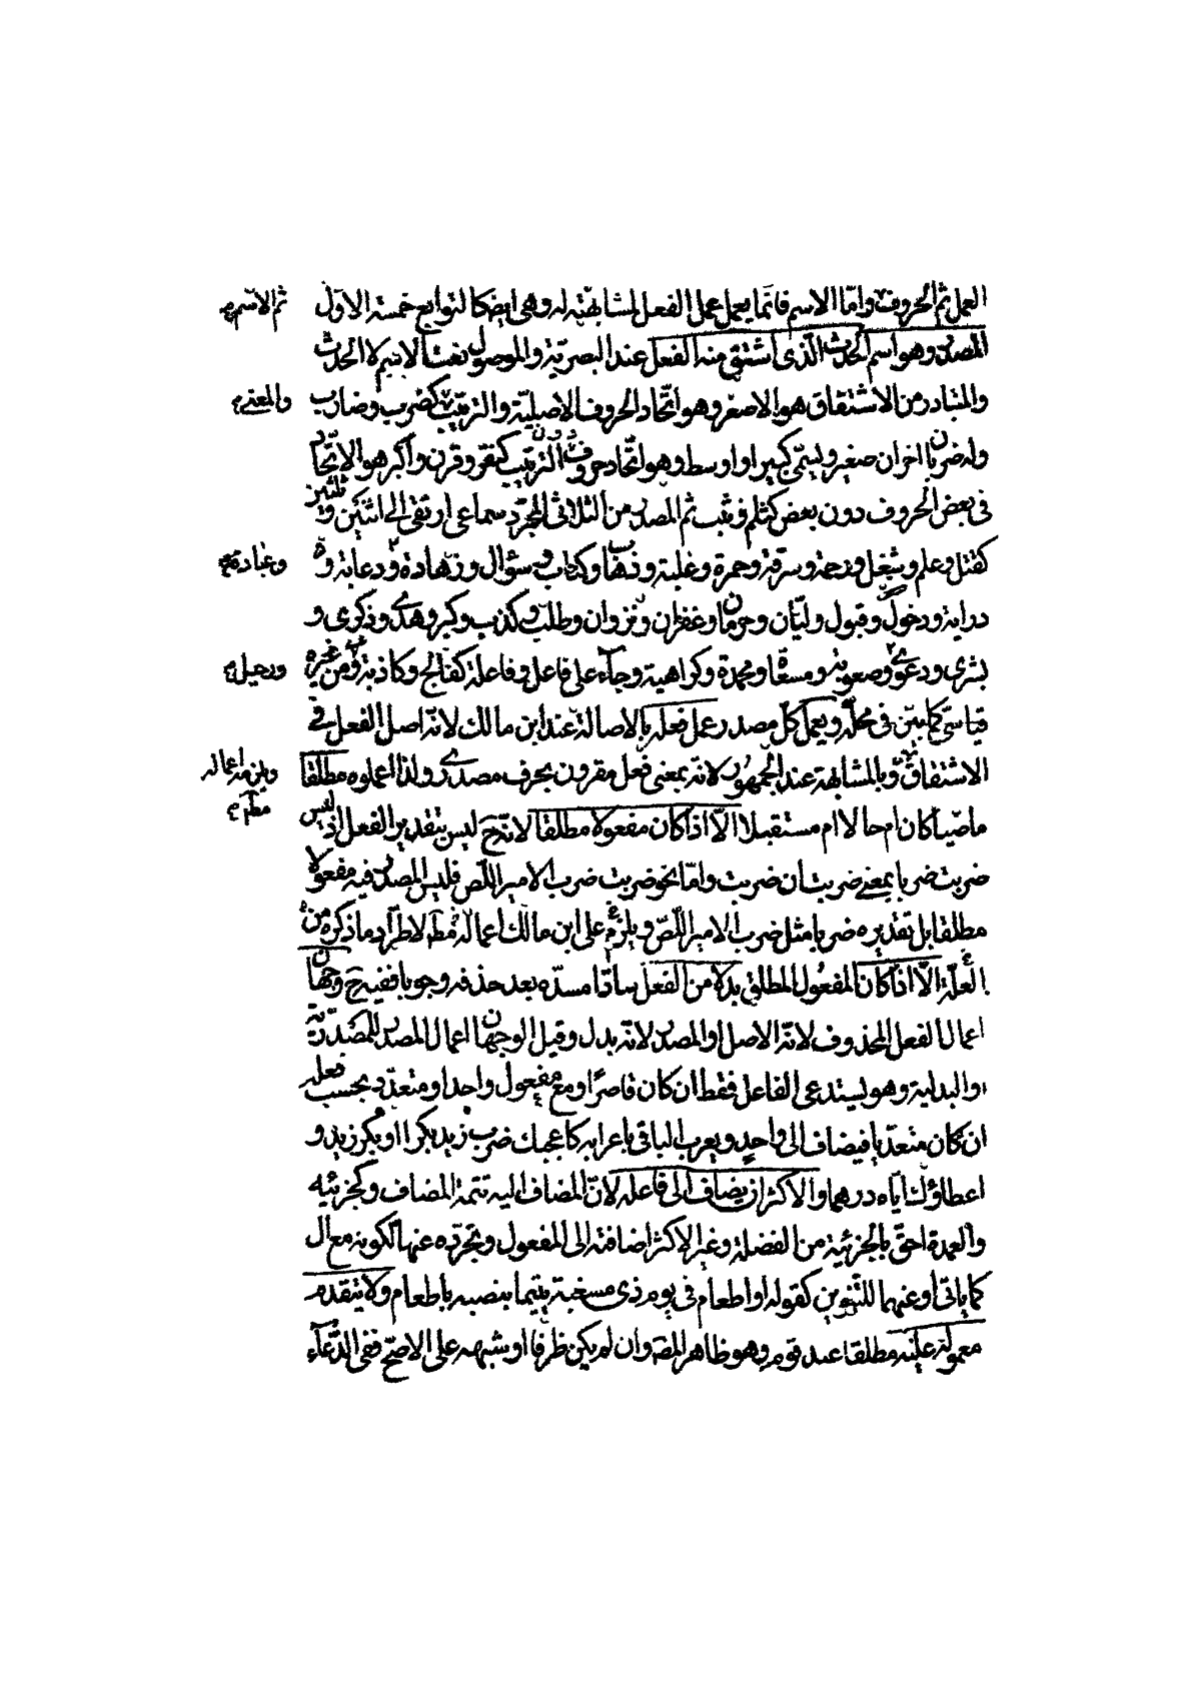 العمل ثم الحروف واما الاسم فانما يعمل عمل الفعل لمشابهته له وهى ايضا كالتوابع خمسة الاول
ثم الاسم
المصدر وهو اسم الحدث الذى اشتق منه الفعل عند البصرية والموصول نعت الاسم لا الحدث
والمتبادر من الاشتقاق هو الاصغر وهو اتحاد الحروف الاصلية والترتيب كضرب وضارب
والمعنى
وله ضربان اخران صغير ويسمى كبيرا واوسط وهو اتحاد حروف دون الترتيب كنقر وقرن واكبر هو الاتحاد
فى بعض الحروف دون بعض كثلم وثلب ثم المصدر من الثلاثى المجرد سماعى ارتقى الى اثنين وثلثين
كقتل وعلم وشغل ورحمة وسرقة وحمرة وغلبة وذهاب وكتاب وسؤال وزهادة ودعابة و
وعبادة
دراية ودخول وقبول وليان وحرمان وغفران ونزوان وطلب وكذب وكبر وهدى وذكرى و
بشرى ودعوى وصعوبة ومسعاة ومحمدة وكراهية وجاء على فاعل وفاعلة كفالج وكاذبة ومن غيره
ورحيل
قياسى كما بين فى محله ويعمل كل مصدر عمل فعله بالاصالة عند ابن مالك لانه اصل الفعل فى
الاشتقاق وبالمشابهة عند الجمهور لانه بمعنى فعل مقرون بحرف مصدرى ولذا اعملوه مطلقا
ويلزمه اعماله
ماضيا كان ام حالا ام مستقبلا الا اذا كان مفعولا مطلقا لانه ح ليس بتقدير الفعل اذ ليس
ضربت ضربا بمعنى ضربت ان ضربت واما نحو ضربت ضرب الامير اللص فليس المصدر فيه مفعولا
مطلقا بل تقديره ضربا مثل ضرب الامير اللص ويلزم على ابن مالك اعماله مط لاطراد ما ذكره من
العلة الا اذا كان المفعول المطلق بدلا من الفعل سادا مسده بعد حذفه وجوبا ففيه ح وجهان
اعمال الفعل المحذوف لانه الاصل او المصدر لانه بدل وقيل الوجهان اعمال المصدر للمصدرية
او البدلية وهو يستدعى الفاعل فقط ان كان قاصرا او مع مفعول واحد او متعدد بحسب فعله
ان كان متعديا فيضاف الى واحد ويعرب الباقى باعرابه كاعجبك ضرب زيد بكرا او بكر زيد و
اعطاؤك اياه درهما والاكثر ان يضاف الى فاعله لان المضاف اليه تتمة المضاف وكجزئيه
والعمدة احق بالجزئية من الفضلة وغير الاكثر اضافته الى المفعول وتجرده عنها لكونه مع ال
كما ياتى او عنهما للتنوين كقوله او اطعام فى يوم ذى مسغبة يتيما بنصبه باطعام ولا يتقدم
معموله عليه مطلقا عند قوم وهو ظاهر المصه وان لم يكن ظرفا او شبهه على الاصح ففى الدعاء